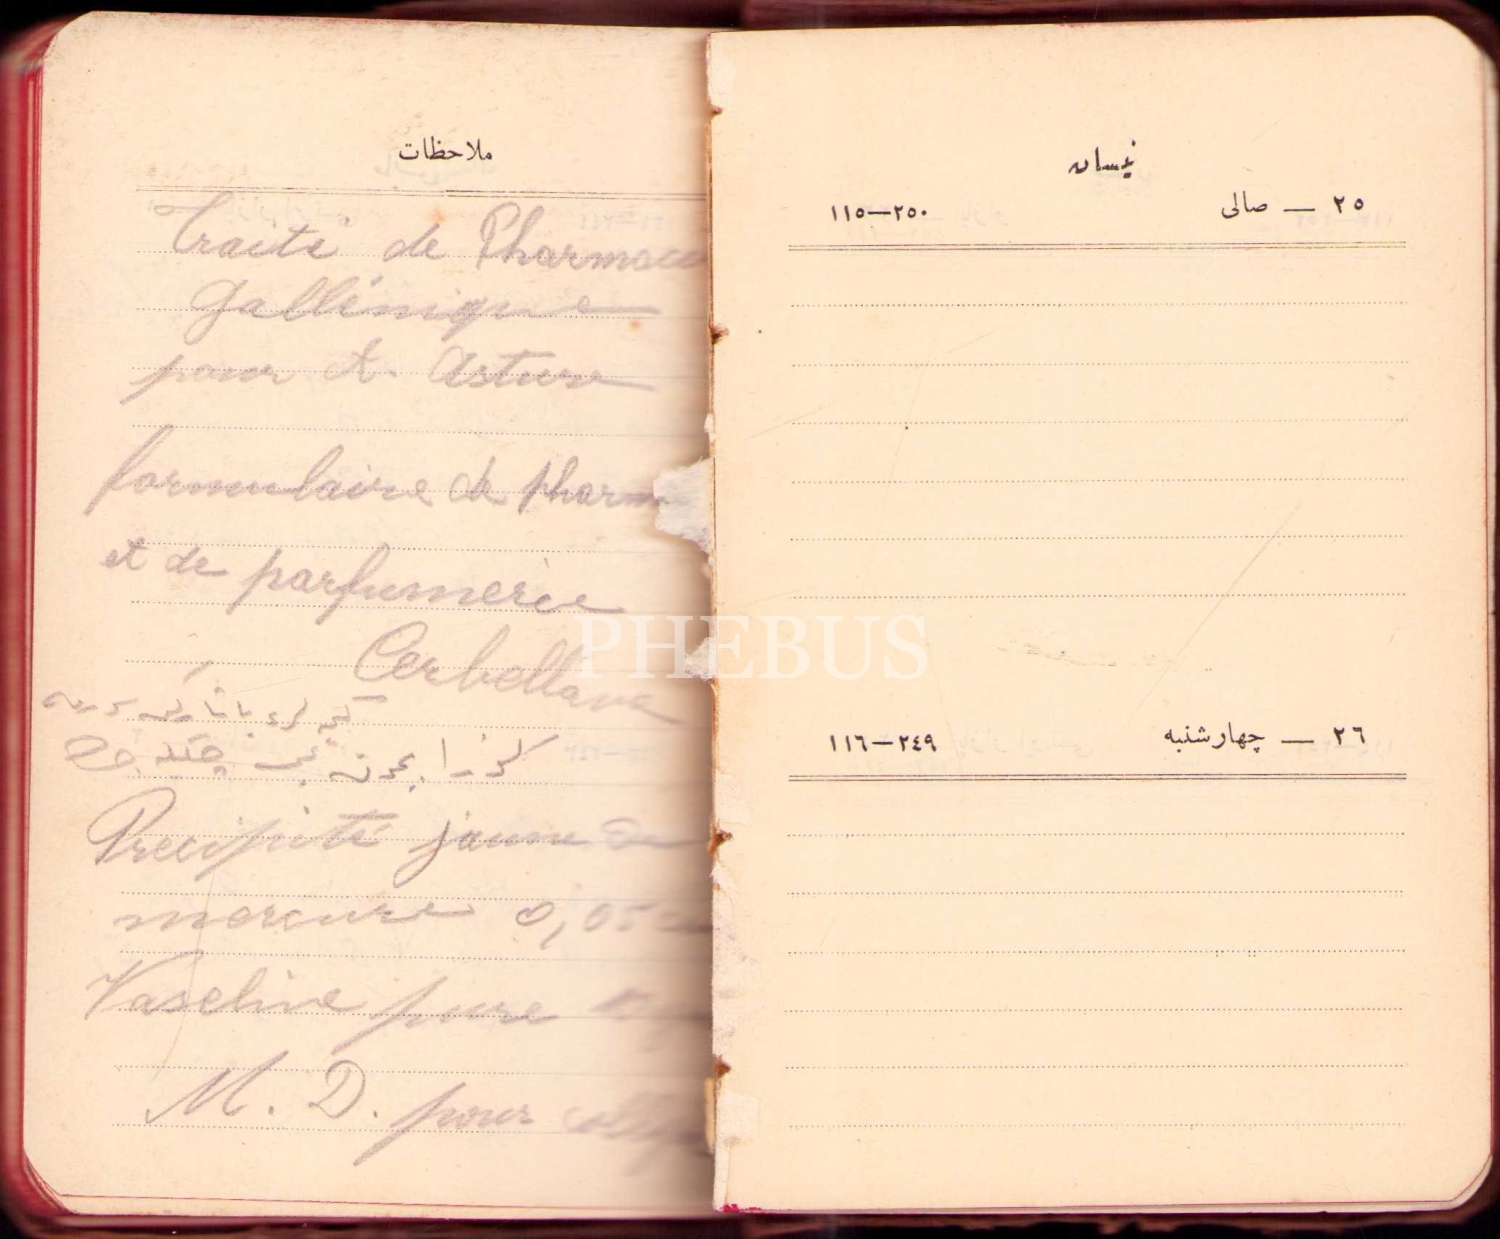 ملاحظات
Traité de Pharmac
Gallénique
pour A. Asture
formulaire de pharm
et de parfumerie
Cerbellava
Précipité jaune de
mercure 0,05
Vaseline pure
M. D. pour
نيسان
٢٥ — صالى ٢٥٠—١١٥
٢٦ — چهارشنبه ٢٤٩—١١٦
PHEBUS